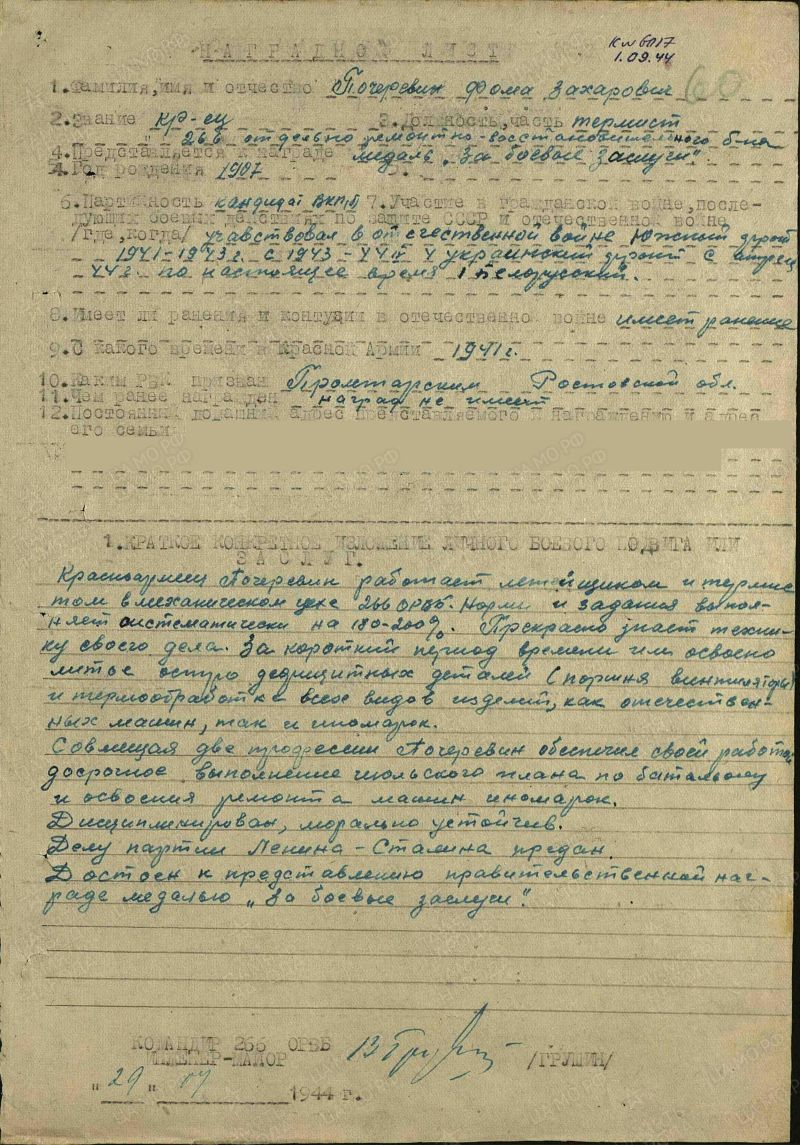 НАГРАДНОЙ ЛИСТ
1.09.44
60
1. Фамилия, имя и отчество Почеревин Фома Захарович
2. Звание кр-ец 3. Должность, часть термист
266 отдельно ремонтно-восстановительного б-на
4. Представляется к награде медаль „За боевые заслуги"
4. Год рождения 1907 5.
6. Партийность кандидат ВКП(б) 7. Участие в гражданской войне, после-
дующих боевых действиях по защите СССР и отечественной войне
/где, когда/ учавствовал в отечественной войне Южный фронт
1941-1943г. с 1943-44г 4 украинский фронт с апреля
44г. по настоящее время 1 Белорусский.
8. Имеет ли ранения и контузии в отечественно войне имеет ранение
9. С какого времени в Красной Армии 1941г.
10. Каким РВК призван Пролетарским Ростовской обл.
11. Чем ранее награжден наград не имеет
12. Постоянный домашний адрес представляемого к награждению и адрес
его семьи
1. КРАТКОЕ КОНКРЕТНОЕ ИЗЛОЖЕНИЕ ЛИЧНОГО БОЕВОГО ПОДВИГА ИЛИ
ЗАСЛУГ.
Красноармеец Почеревин работает литейщиком и термис
том в механическом цехе 266 ОРВБ. Нормы и задания выпол-
няет систематически на 180-200%. Прекрасно знает техни-
ку своего дела. За короткий период времени им освоено
литье остро дефицитных деталей (поршня вентилятора)
и термообработка всех видов изделий, как отечествен-
ных машин, так и иномарок.
Совмещая две профессии Почеревин обеспечил своей работой
досрочное выполнение июльского плана по батальону
и освоения ремонта машин иномарок.
Дисциплинирован, морально устойчив.
Делу партии Ленина-Сталина предан.
Достоен к представлению правительственной наг-
раде медалью „За боевые заслуги".
КОМАНДИР 266 ОРВБ
ИНЖЕНЕР-МАЙОР /ГРУШИН/
"29" 07 1944 г.